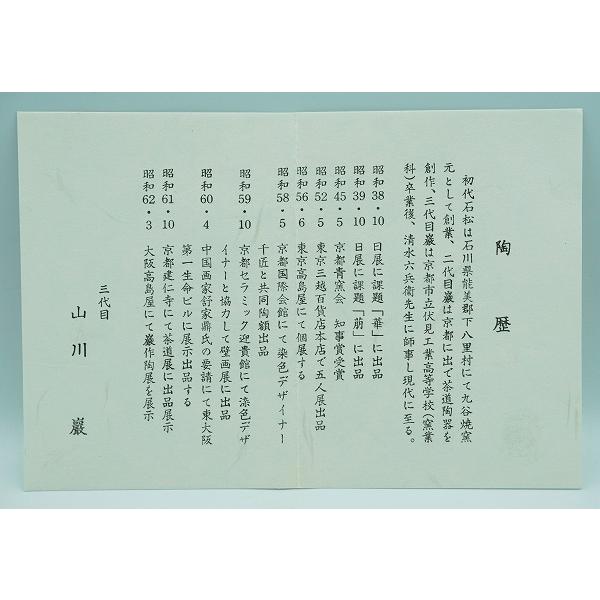 陶歴
初代石松は石川県能美郡下八里村にて九谷焼窯
元として創業、二代目巌は京都に出で茶道陶器を
創作、三代目巌は京都市立伏見工業高等学校(窯業
科)卒業後、清水六兵衛先生に師事し現代に至る。
昭和38・10 日展に課題「華」に出品
昭和39・10 日展に課題「萠」に出品
昭和45・5 京都青窯会 知事賞受賞
昭和52・5 東京三越百貨店本店で五人展出品
昭和56・6 東京高島屋にて個展する
昭和58・5 京都国際会館にて染色デザイナー
千匠と共同陶額出品
昭和59・10 京都セラミック迎賓館にて染色デザ
イナーと協力して壁画展に出品
昭和60・4 中国画家舒家鼎氏の要請にて東大阪
第一生命ビルに展示出品する
昭和61・10 京都建仁寺にて茶道展に出品展示
昭和62・3 大阪高島屋にて巌作陶展を展示
三代目
山川 巌